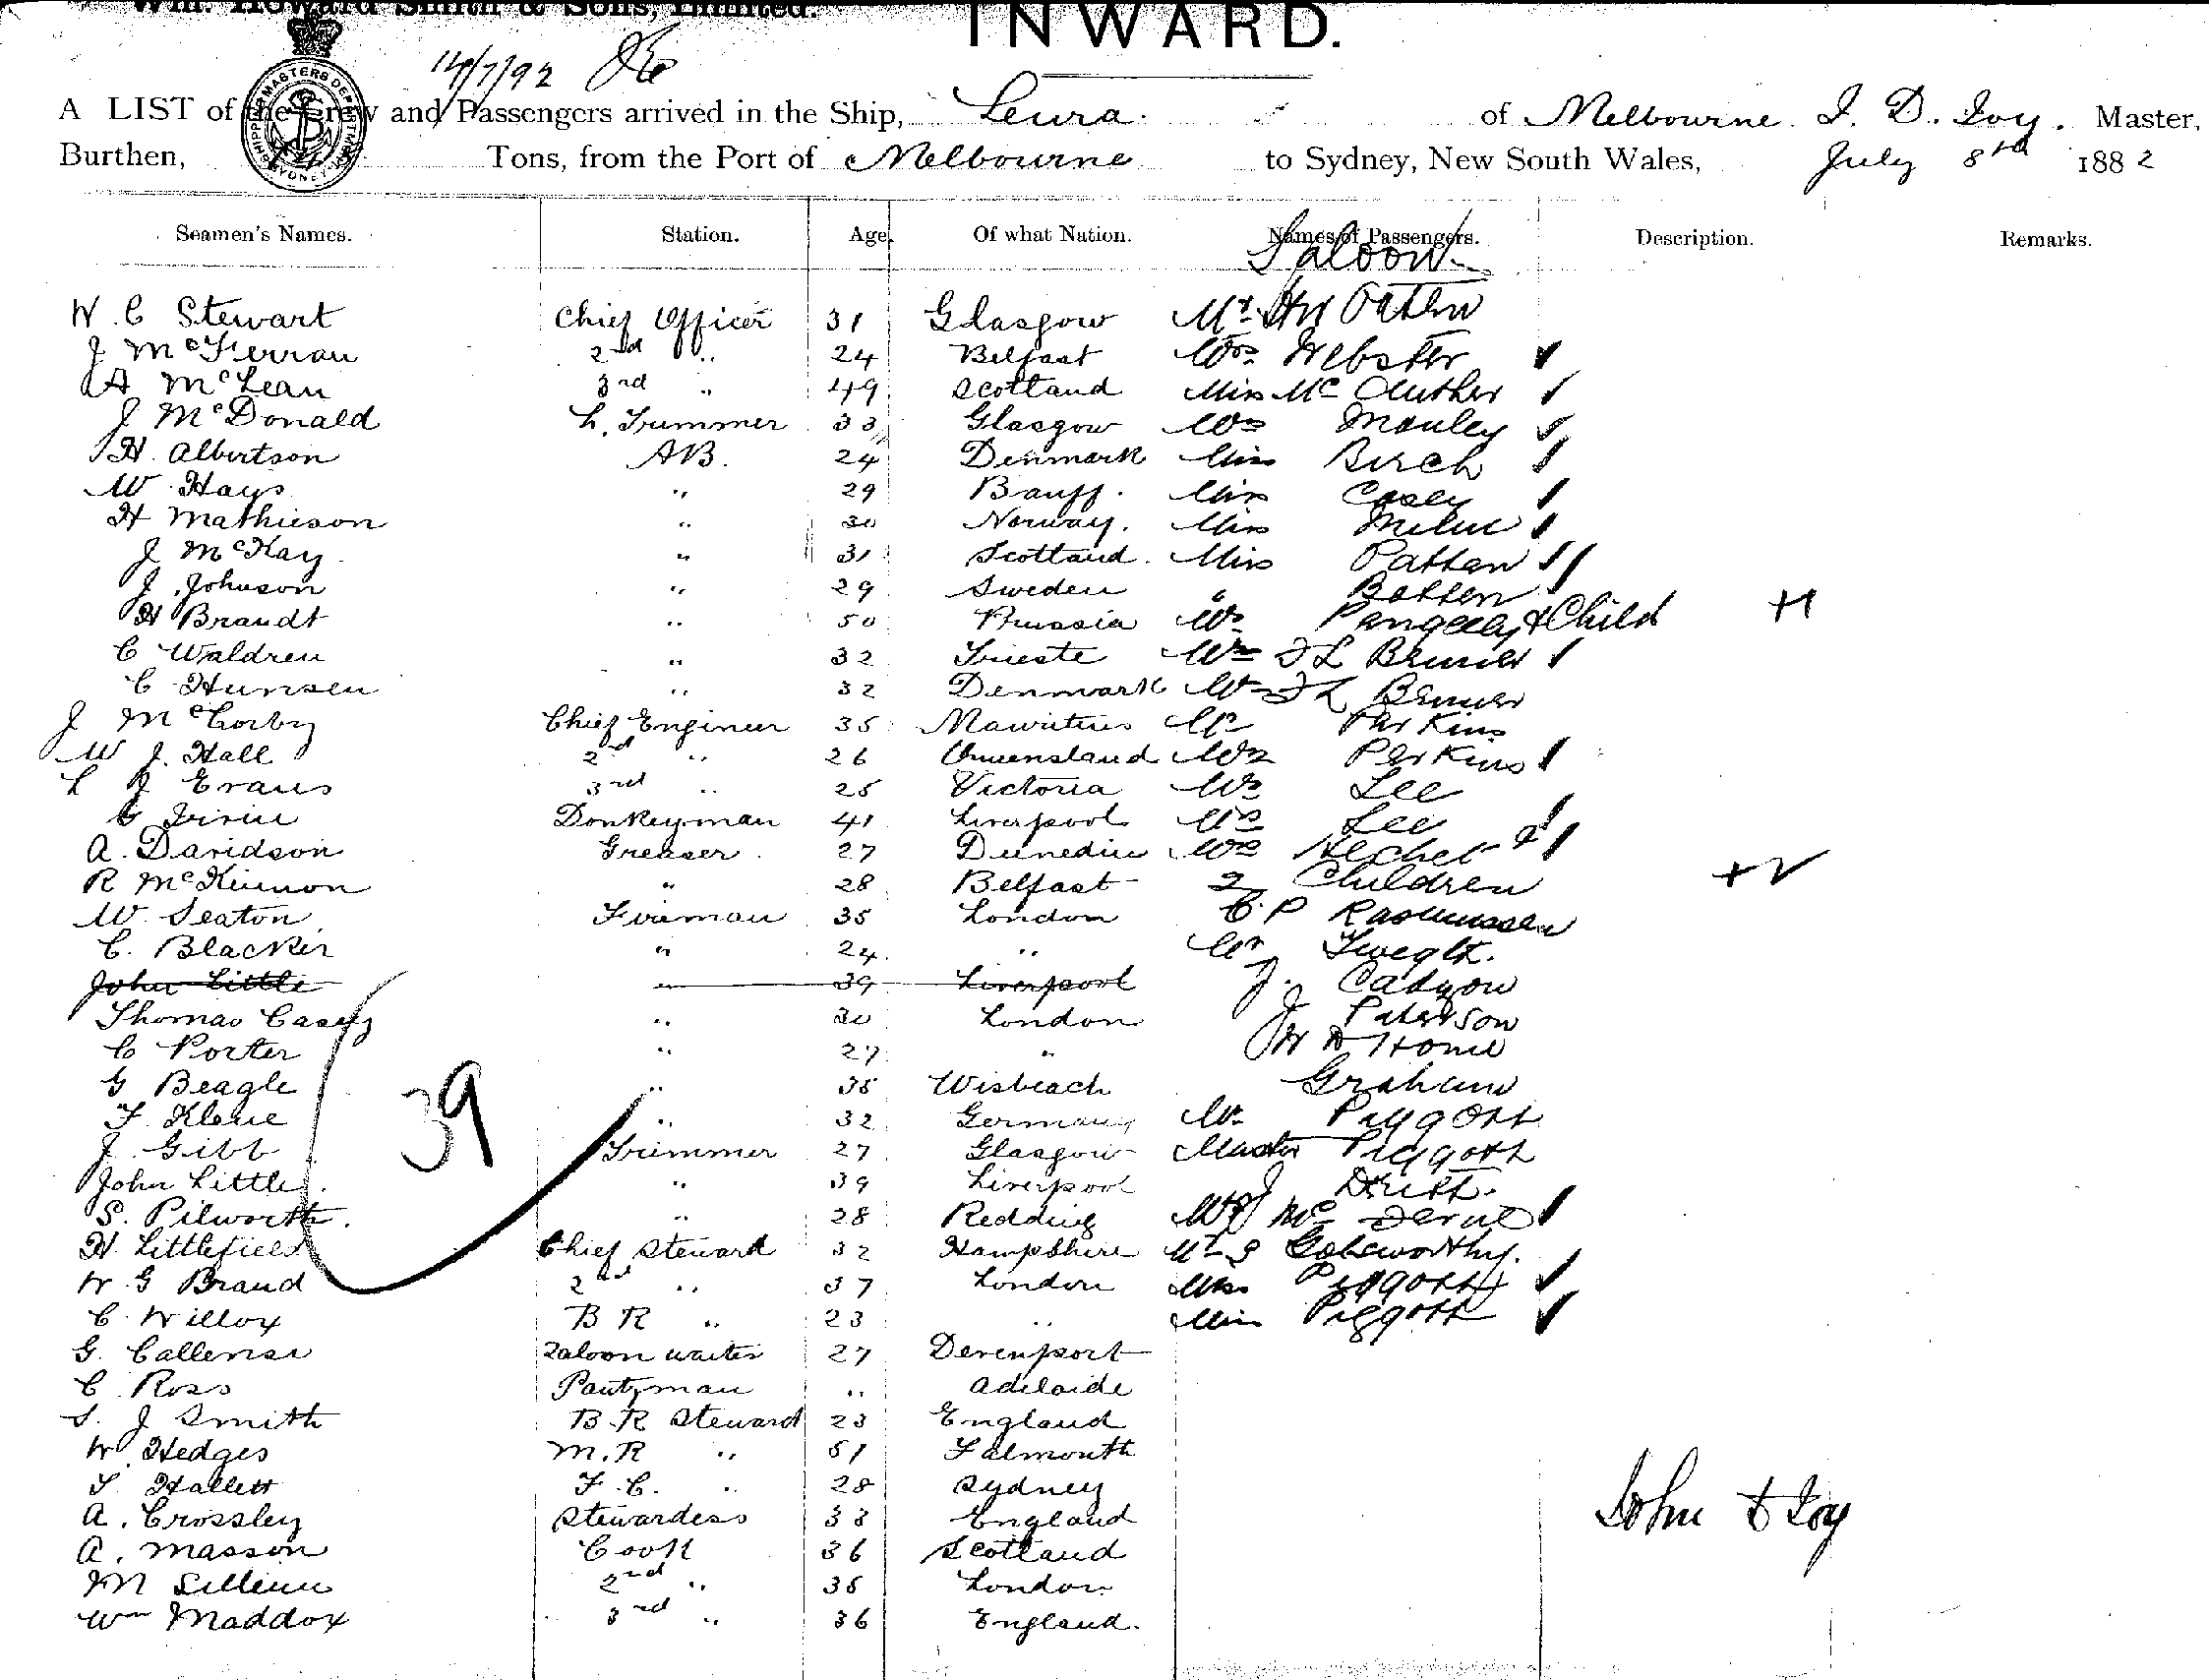 Wm. Howard Smith & Sons, Limited.
INWARD.
14/7/92
A LIST of the Crew and Passengers arrived in the Ship, Leura. of Melbourne. J. D. Loy. Master,
Burthen, Tons, from the Port of Melbourne to Sydney, New South Wales, July 8th 1882
Seamen's Names. Station. Age. Of what Nation. Names of Passengers. Description. Remarks.
Saloon
W. C Stewart Chief Officer 31 Glasgow Mr Patten
J McFerran 2nd " 24 Belfast Mrs Webster
A McLean 3rd " 49 Scotland Miss Mc Authur
J McDonald L. Trimmer 33 Glasgow Mrs Manley
H. Albertson AB. 24 Denmark Miss Birch
W Hays " 29 Banff. Miss Casey
H Mathieson " 30 Norway. Miss Milne
J McKay " 31 Scotland. Miss Patten
J. Johnson " 29 Sweden " Batten
H Brandt " 50 Prussia Mrs Pengelly & Child +1
C Waldren " 32 Trieste Mrs F L Bruner
C Hunsen " 32 Denmark Mr F L Bruner
J McCorby Chief Engineer 35 Mauritius Mr Perkins
W J. Hall 2nd " 26 Queensland Mrs Perkins
L J Evans 3rd " 25 Victoria Mr Lee
G Irvin Donkeyman 41 Liverpool Mrs Lee
A. Davidson Greaser 27 Dunedin Mrs Hechel &
R McKinnon " 28 Belfast 2 Children +2
W. Seaton Fireman 35 London C. P Rasmussen
C. Blacker " 24 " Mr
John Little " 39 Liverpool J.
Thomas Casey " 30 London J Paterson
C Porter " 27 " W A Home
G Beagle " 35 Wisbeach Graham
F Klene " 32 Germany Mr Piggott
J. Gibb Trimmer 27 Glasgow Master Piggott
John Little. " 39 Liverpool J
S. Pilworth. " 28 Redding Mrs Mc
H. Littlefield Chief Steward 32 Hampshire Mr S Golsworthy.
W. G Brand 2nd " 37 London Miss Piggott
C. Willox B R " 23 " Miss Piggott
G. Callensi Saloon waiter 27 Devenport
C. Ross Pantryman " Adelaide
S. J Smith B.R Steward 23 England
W. Hedges M.R " 51 Falmouth
S Hallett F. C. " 28 Sydney
A. Crossley Stewardess 33 England
A. Masson Cook 36 Scotland
M 2nd " 35 London
Wm Maddox 3rd " 36 England.
39
John D Loy